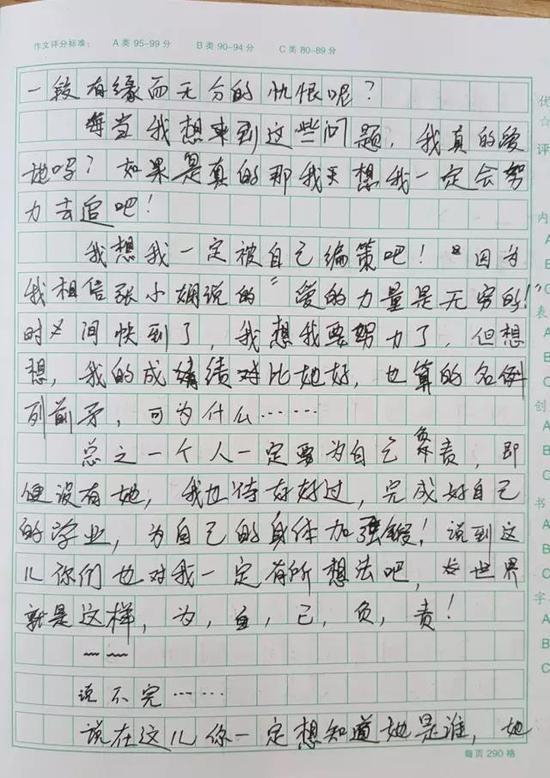 作文评分标准： A类95-99分 B类90-94分 C类80-89分
一段有缘而无分的仇恨呢？
每当我想来到这些问题，我真的爱
她吗？如果是真的那我天想我一定会努
力去追吧！
我想我一定被自己编策吧！因为
我相信张小娴说的“爱的力量是无穷的！”
时间快到了，我想我要努力了，但想
想，我的成绩对比她好，也算的名例
列前矛，可为什么……
总之一个人一定要为自己负责，即
便没有她，我也待好好过，完成好自己
的学业，为自己的身体加强锻！说到这
儿你们也对我一定有所想法吧，世界
就是这样，为，自，己，负，责！
~~
说不完……
说在这儿你一定想知道她是谁，她
每页290格
优
☆
评
内
A
B
C
表
A
B
C
创
A
B
C
书
A
B
C
字
A
B
C